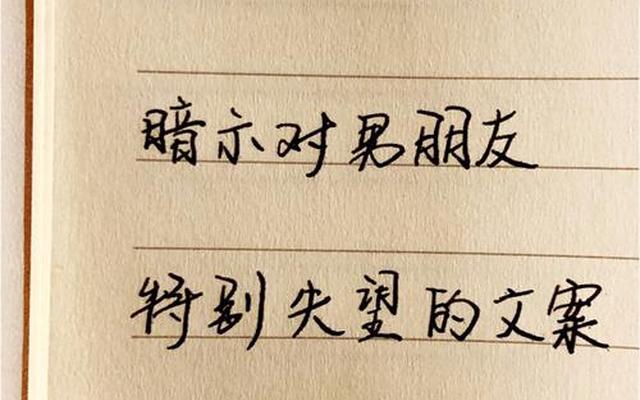 暗示对男朋友
特别失望的文案